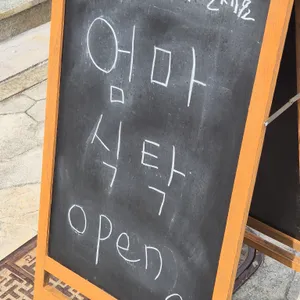 엄마
식탁
open